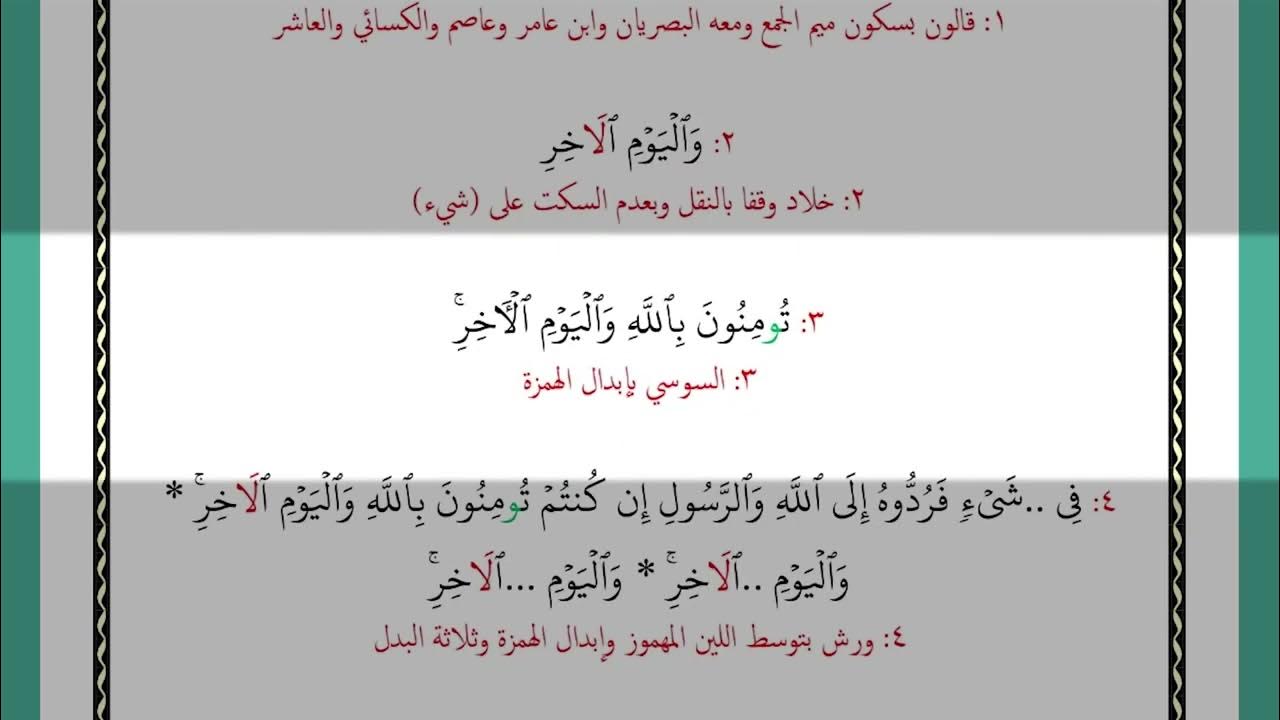 ١: قالون بسكون ميم الجمع ومعه البصريان وابن عامر وعاصم والكسائي والعاشر
٢: وَٱلْيَوْمِ ٱلَاخِرِ
٢: خلاد وقفا بالنقل وبعدم السكت على (شيء)
٣: تُومِنُونَ بِٱللَّهِ وَٱلْيَوْمِ ٱلْأَخِرِۚ
٣: السوسي بإبدال الهمزة
٤: فِى ..شَىْءٖ فَرُدُّوهُ إِلَى ٱللَّهِ وَٱلرَّسُولِ إِن كُنتُمْ تُومِنُونَ بِٱللَّهِ وَٱلْيَوْمِ ٱلَاخِرِۚ *
وَٱلْيَوْمِ ..ٱلَاخِرِۚ * وَٱلْيَوْمِ ...ٱلَاخِرِۚ
٤: ورش بتوسط اللين المهموز وإبدال الهمزة وثلاثة البدل